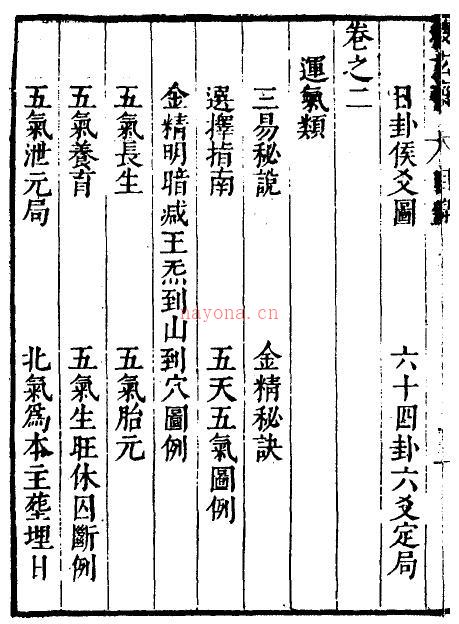 日卦侯爻圖 六十四卦六爻定局
卷之二
運氣類
三易秘説 金精秘訣
選擇指南 五天五氣圖例
金精明暗减王炁到山到穴圖例
五氣長生 五氣胎元
五氣養育 五氣生旺休囚斷例
五氣泄元局 北氣爲本主塟埋日
nayona.cn